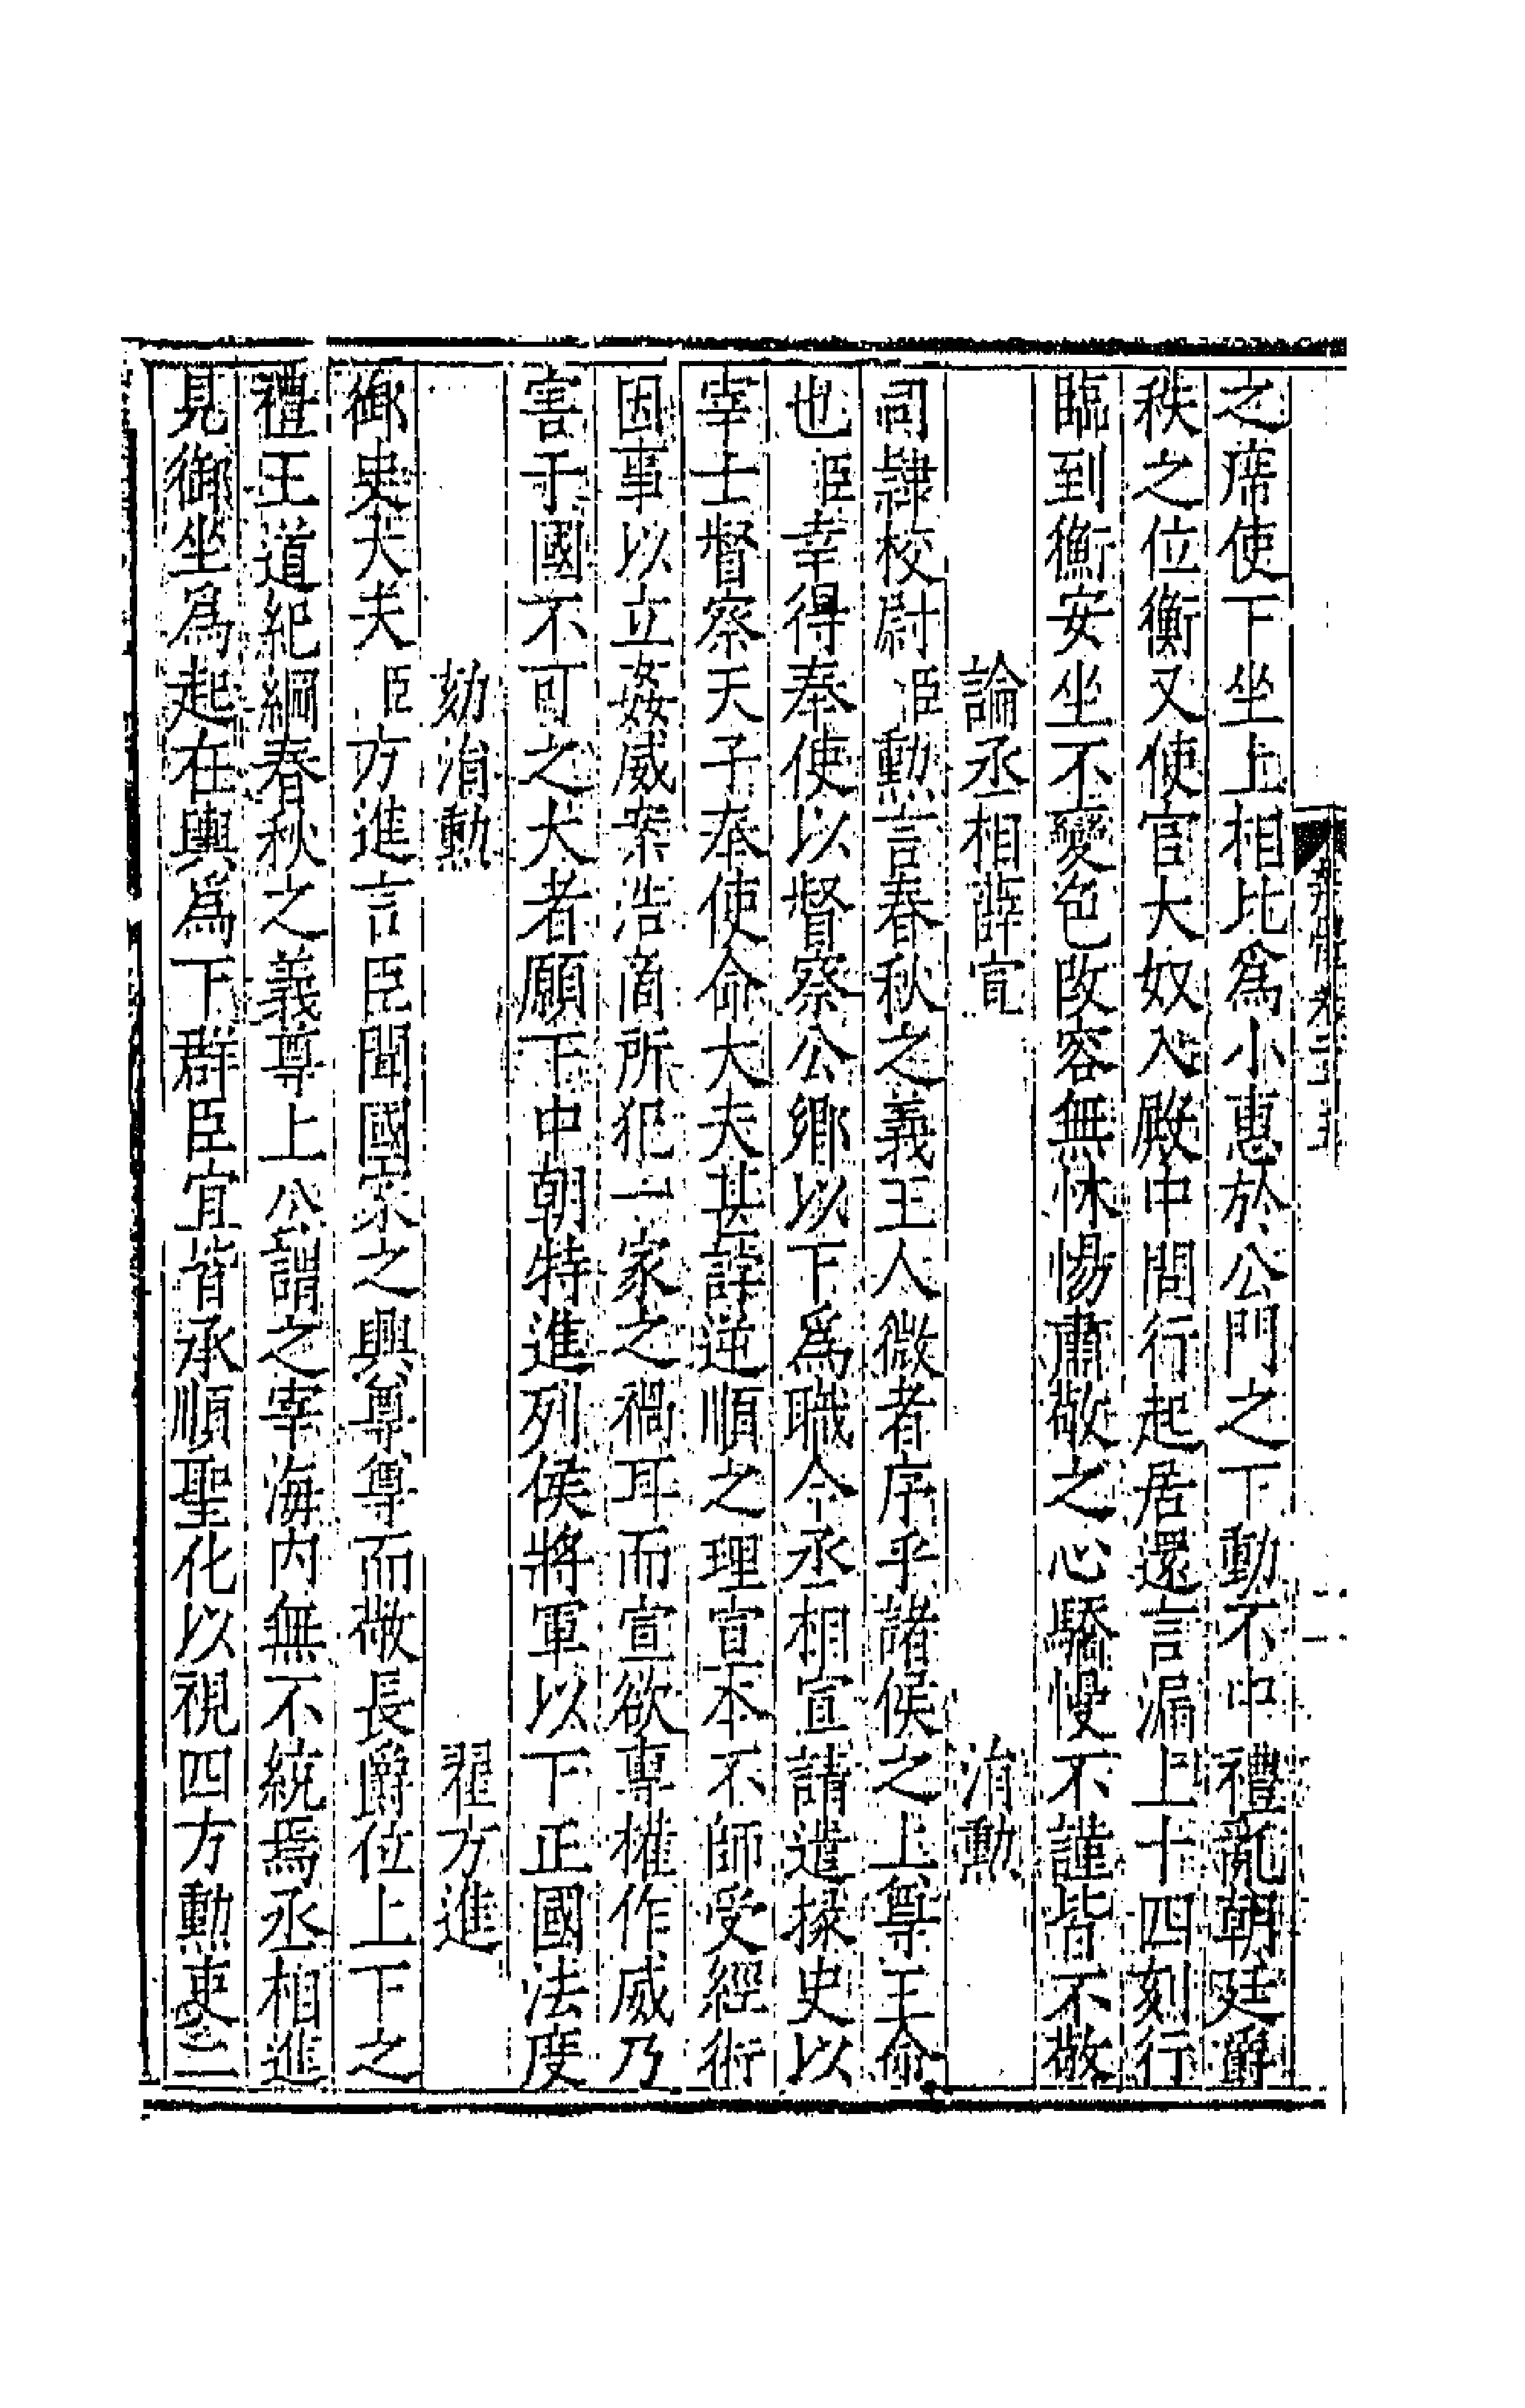 之席使下坐上相比爲小惠於公門之下動不中禮亂朝廷爵
秩之位衡又使官大奴入殿中問行起居還言漏上十四刻行
臨到衡安坐不變色改容無怵惕肅敬之心驕慢不謹皆不敬
論丞相薛宣　涓勳
司隸校尉臣勳言春秋之義王人微者序乎諸侯之上尊王命
也臣幸得奉使以督察公卿以下爲職今丞相宣請遣掾史以
宰士督察天子奉使命大夫甚誖逆順之理宣本不師受經術
因事以立姦威案浩商所犯一家之禍耳而宣欲專權作威乃
害于國不可之大者願下中朝特進列侯將軍以下正國法度
劾涓勳　翟方進
御史大夫臣方進言臣聞國家之興尊尊而敬長爵位上下之
禮王道紀綱春秋之義尊上公謂之宰海內無不統焉丞相進
見御坐爲起在輿爲下群臣宜皆承順聖化以視四方勳吏二